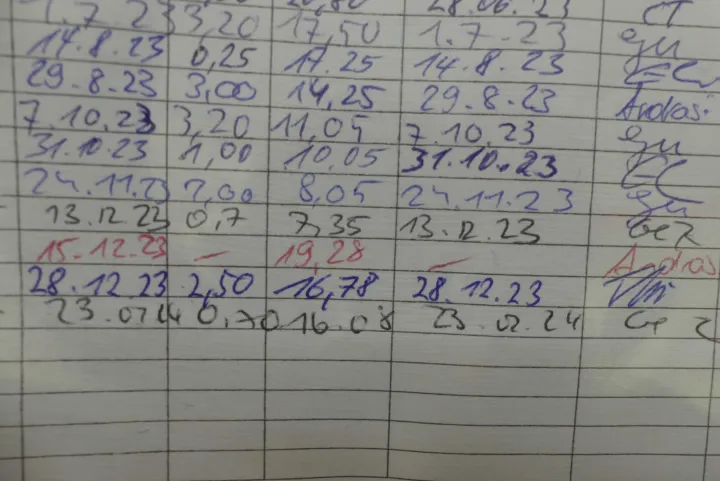 28.06.23
1.7.23 3,20 17,50 1.7.23 gu
14.8.23 0,25 17.25 14.8.23 EC
29.8.23 3,00 14,25 29.8.23 Andras
7.10.23 3,20 11,05 7.10.23 gu
31.10.23 1,00 10.05 31.10.23 EC
24.11.23 2,00 8,05 24.11.23 gu
13.12.23 0,7 7,35 13.12.23
15.12.23 — 19,28 — Andras
28.12.23 2,50 16,78 28.12.23
23.02.24 0,70 16.08 23.02.24